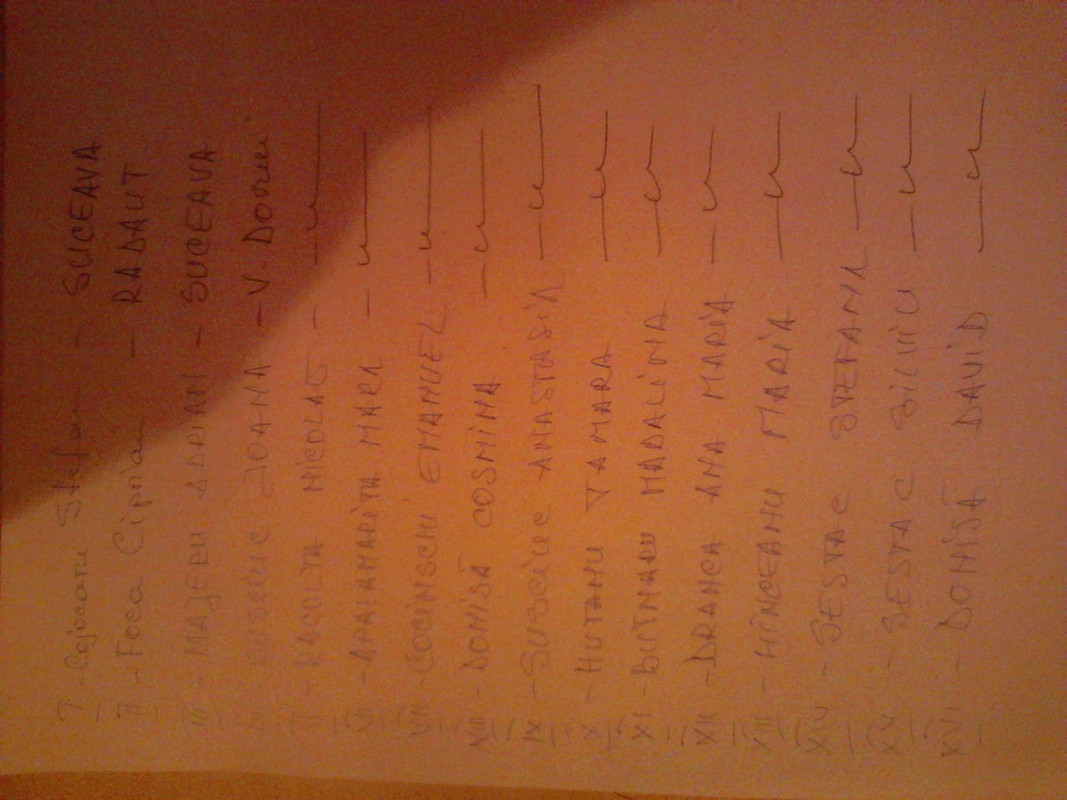 I - Cojocaru Stefan - SUCEAVA
II - Foca Ciprian - RADAUT
III - MAJERU ADRIAN - SUCEAVA
IV - SUSCIUC IOANA - V. Dornei
V - RACOLTA NICOLAE - — u —
VI - APALAMARITA MARA - u —
VII - COCINSCHI EMANUEL - u —
VIII - DONISĂ COSMINA - u —
IX - SUSCIUC ANASTASIA - u —
X - HUTANU TAMARA - u —
XI - BUTNARU MADALINA - u —
XII - DRANCA ANA MARIA - u —
XIII - HINCEANU MARIA - u —
XIV - SESTAC STEFANA - u —
XV - SESTAC SILVIU - u —
XVI - DONISĂ DAVID - u —